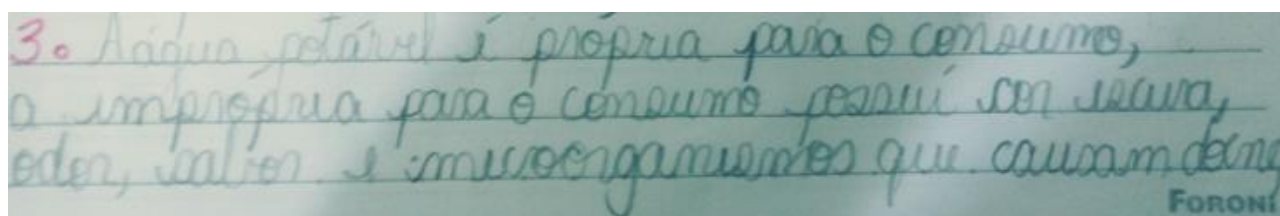 3. A água potável é própria para o consumo,
a imprópria para o consumo possui cor escura,
odor, sabor e microorganismos que causam doenç
FORONI